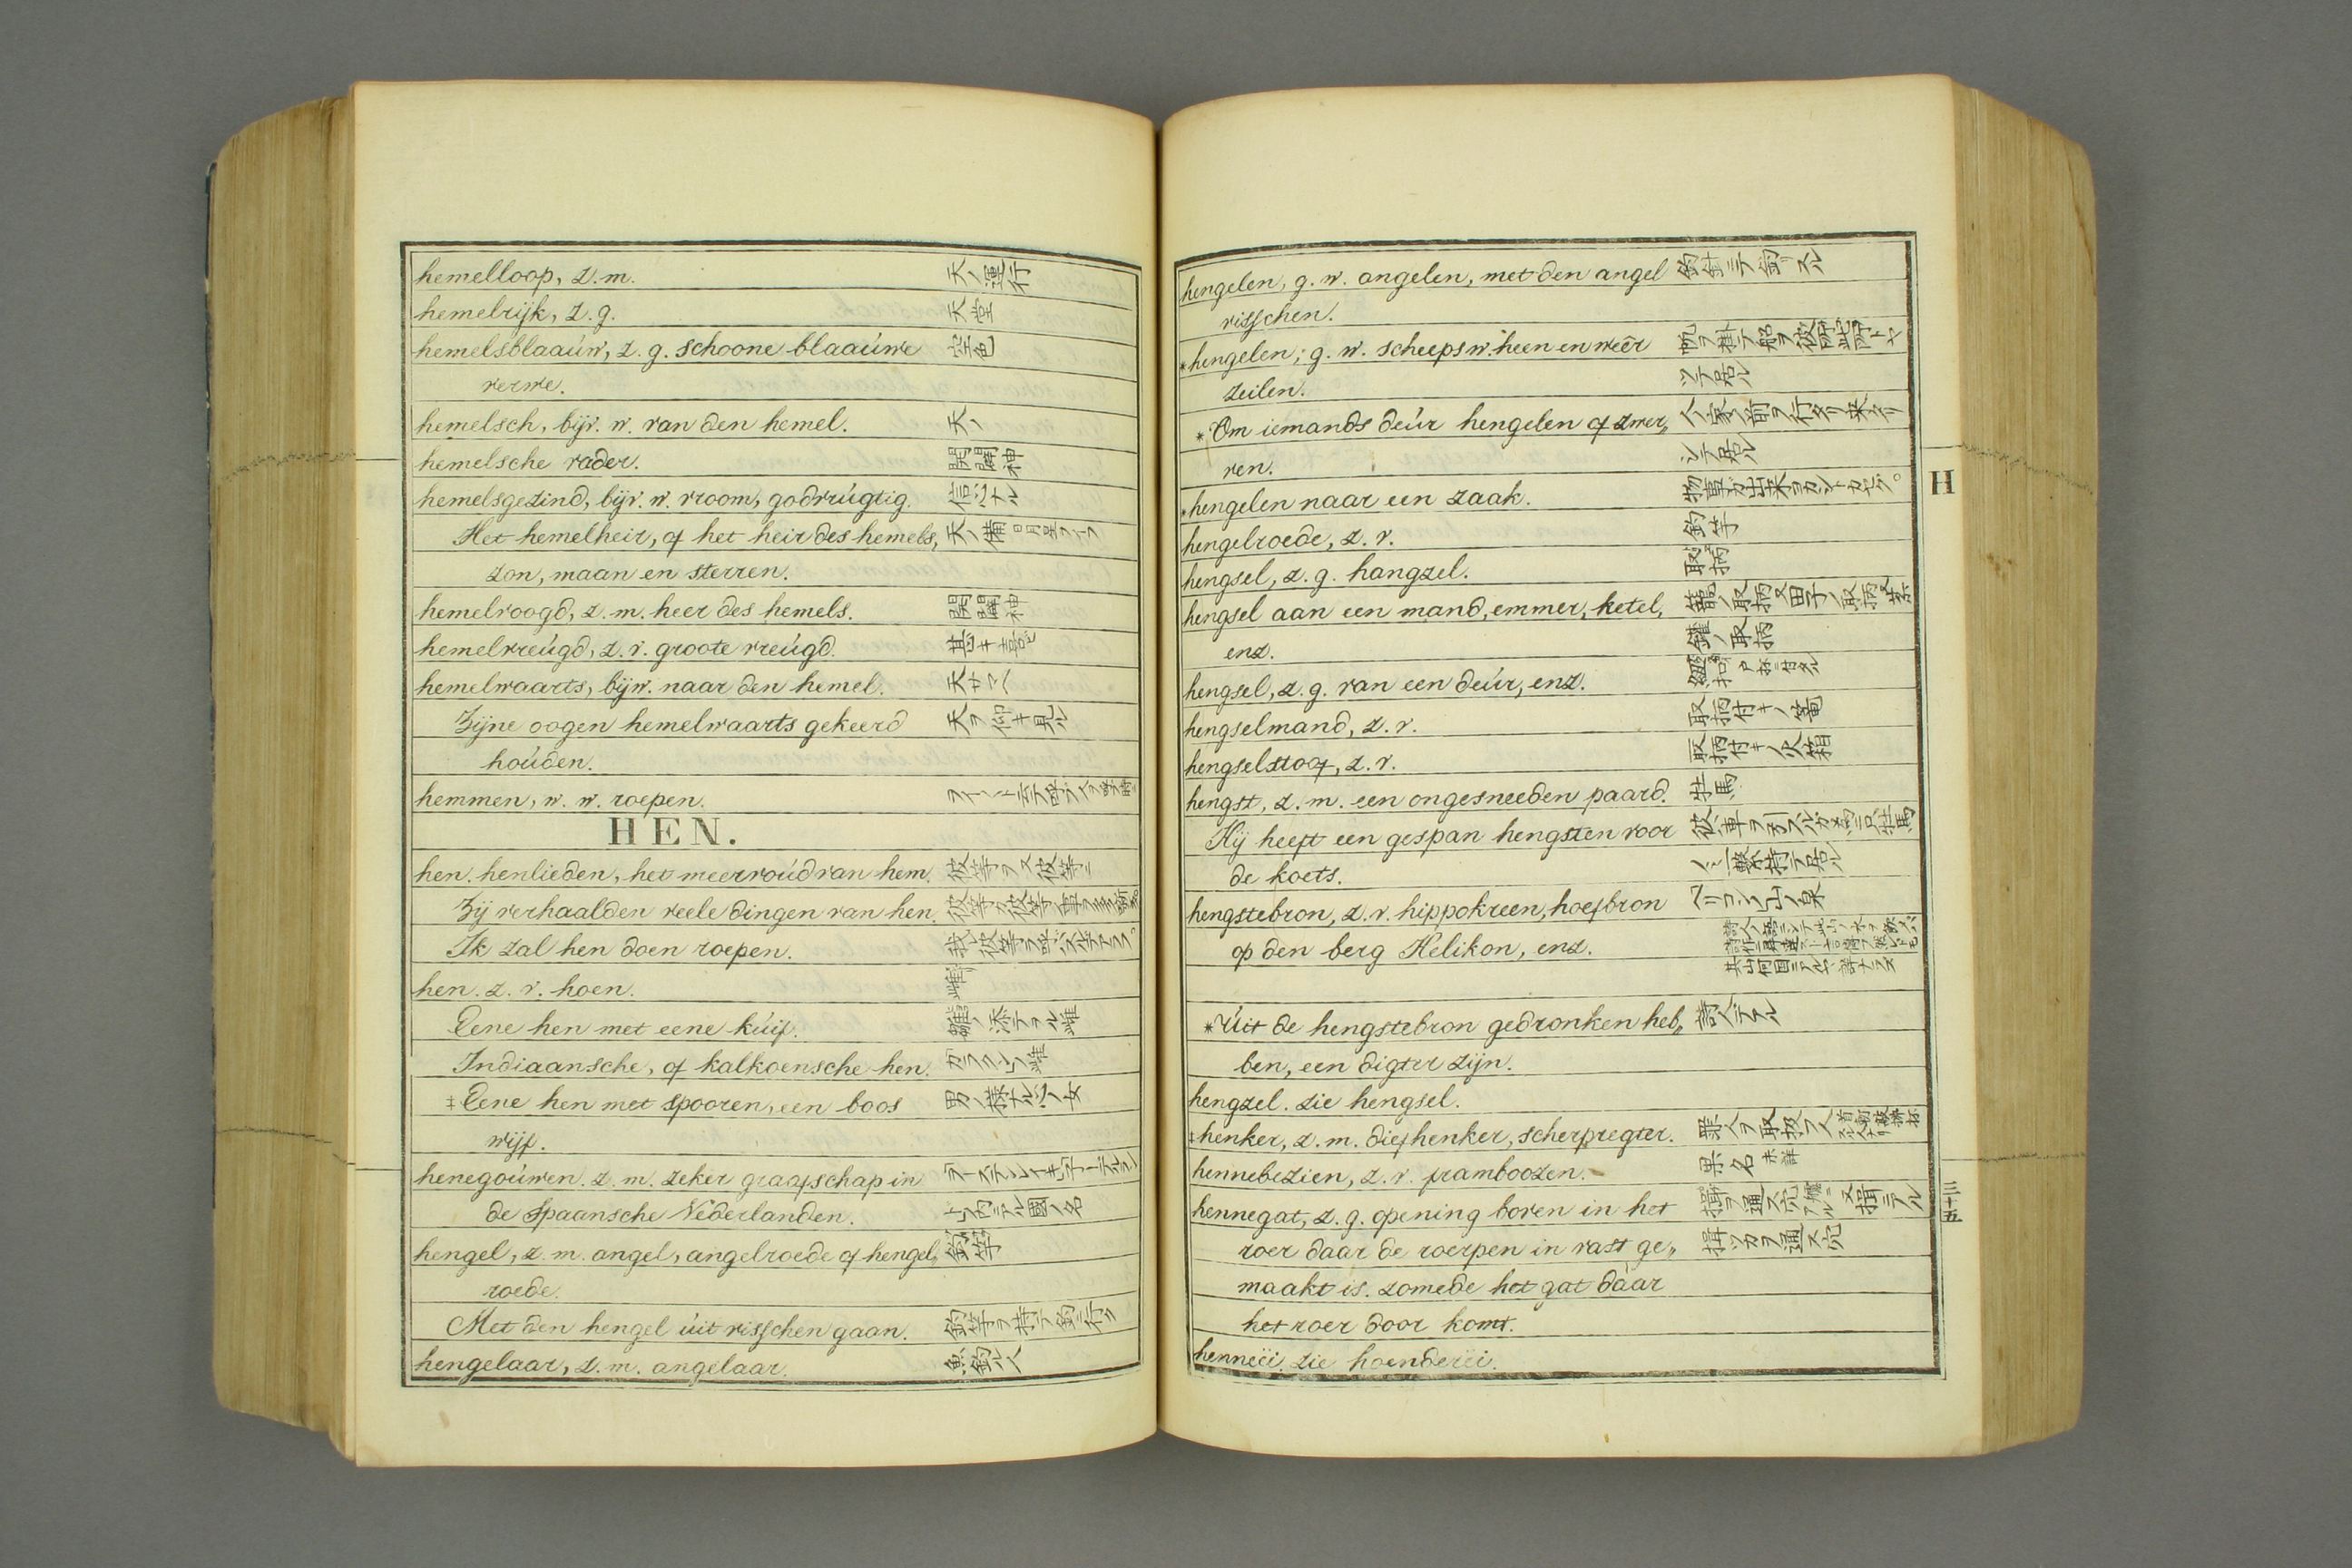 hemelloop, z.m. 天ノ運行
hemelrijk, z.g. 天堂
hemelsblaaúw, z.g. schoone blaaúwe 空色
verwe.
hemelsch, bijv. w. van den hemel. 天ノ
hemelsche vader. 開闢神
hemelsgezind, bijv. w. vroom, godvrúgtig. 信心ナル
Het hemelheir, of het heir des hemels, 天ノ備
zon, maan en sterren.
hemelvoogd, z.m. heer des hemels. 開闢神
hemelvreúgd, z.v. groote vreúgd. 甚キ喜ビ
hemelwaarts, bijw. naar den hemel. 天サマヘ
Zijne oogen hemelwaarts gekeerd 天ヲ仰キ見ル
hoúden.
hemmen, w. w. roepen.
HEN.
hen. henlieden, het meervoúd van hem. 彼等ヲ又彼等ニ
Zij verhaalden veele dingen van hen.
Ik zal hen doen roepen.
hen. z.v. hoen. 雌
Eene hen met eene kúif.
Indiaansche, of kalkoensche hen.
‡Eene hen met spooren, een boos 男ノ様ナル心ノ女
wijf.
henegoúwen. z.m. zeker graafschap in
de Spaansche Nederlanden. 内ニアル國ノ名
hengel, z.m. angel, angelroede of hengel„ 釣竿
roede.
Met den hengel úit visschen gaan. 釣竿ヲ持テ釣ニ行ク
hengelaar, z.m. angelaar. 魚釣ル人
hengelen, g.w. angelen, met den angel 釣針ニテ釣リスル
visschen.
*hengelen; g.w. scheeps w. heen en weêr 帆ヲ掛テ船ヲ彼所此所トヤ
zeilen. ツテ居ル
*Om iemands deúr hengelen of zwer„ 人ノ家ノ前ヲ行タリ来タリ
ven. シテ居ル
*hengelen naar een zaak.
hengelroede, z.v. 釣竿
hengsel, z.g. hangzel. 取柄
hengsel aan een mand, emmer, ketel, 籠ノ取柄
enz. 鑵ノ取柄
hengsel, z.g. van een deúr, enz.
hengselmand, z.v. 取柄付キノ篭
hengselstoof, z.v. 取柄付キノ火箱
hengst, z.m. een ongesneeden paard. 牡馬
Hij heeft een gespan hengsten voor
de koets.
hengstebron, z.v. hippokreen, hoefbron ヘリコン山ノ泉
op den berg Helikon, enz.
*Úit de hengstebron gedronken heb„ 詩人デアル
ben, een digter zijn.
hengzel. zie hengsel.
‡henker, z.m. diefhenker, scherpregter. 罪人ヲ取扱フ人
hennebezien, z.v. framboozen. 果名 未詳
hennegat, z.g. opening boven in het
roer daar de roerpen in vast ge„
maakt is. zomede het gat daar
het roer door komt.
henneëi. zie hoendereïi.
H
三十五